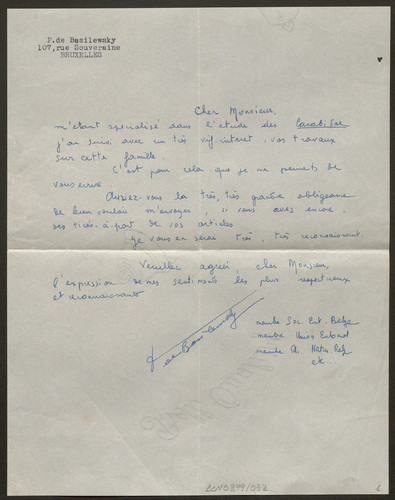 P.de Basilewsky
107,rue Souveraine
BRUXELLES
Cher Monsieur,
m'étant spécialisé dans l'étude des Carabidae
j'ai suivi avec un très vif interet, vos travaux
sur cette famille.
C'est pour cela que je me permets de
vous écrire.
Auriez-vous la très, très grande obligeance
de bien vouloir m'envoyer, si vous avez encore,
des tirés-à-part de vos articles
Je vous en serai très, très reconnaissant.
Veuillez agréer, cher Monsieur,
l'expression de mes sentiments les plus respectueux
et reconnaissants
P. de Basilewsky
membre Soc. Ent. Belge
membre Union Entomol.
membre Natur. Belg.
etc...